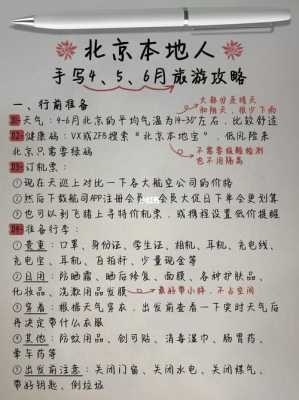 北京本地人
手写4、5、6月旅游攻略
一、行前准备
大部分是晴天
和阴天,很少下雨
01天气:4-6月北京的平均气温为14-30°左右,比较舒适
02健康码:VX或ZFB搜索“北京本地宝”,低风险来
北京只需要绿码
不需要核酸检测
也不用隔离
03订机票:
①现在天巡上对比一下各大航空公司的价格
②然后下载航司APP注册会员,会员大促日下单会更划算
③也可以到飞猪上寻特价机票,或携程设置低价提醒
04准备行李:
①贵重:口罩、身份证、学生证、相机、耳机、充电线、
充电宝、耳机、自拍杆、少量现金等
②日用:防晒霜、晒后修复、面膜、各种护肤品、
化妆品、洗漱用品发膜
最好带小样,不占空间
③穿着:根据天气穿衣,出发前查看一下实时天气后
再决定带什么衣服
④其他:防蚊用品、创可贴、消毒湿巾、肠胃药、
晕车药等
⑤出发前注意:关闭门窗、关闭水电、关闭煤气、
带好钥匙、倒垃圾